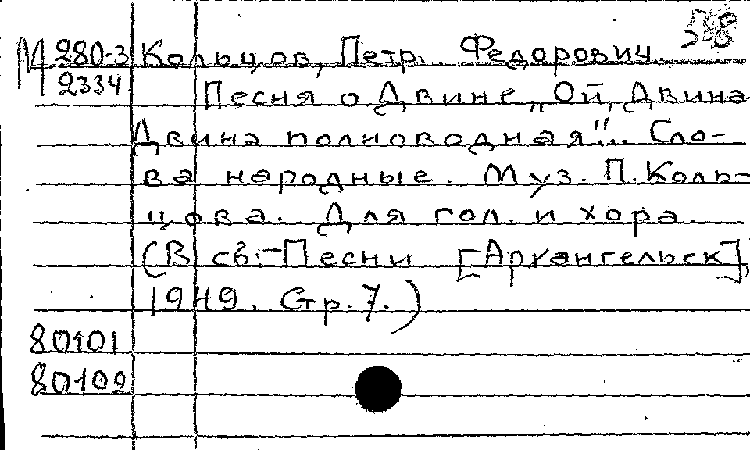 М 280-3 Кольцов, Петр. Федорович.
2334 Песня о Двине „Ой, Двина
Двина полноводная"... Сло-
ва народные. Муз. П. Коль-
цова. Для гол. и хора.
(В сб.-Песни [Архангельск],
1949. Стр. 7.)
80101
80102